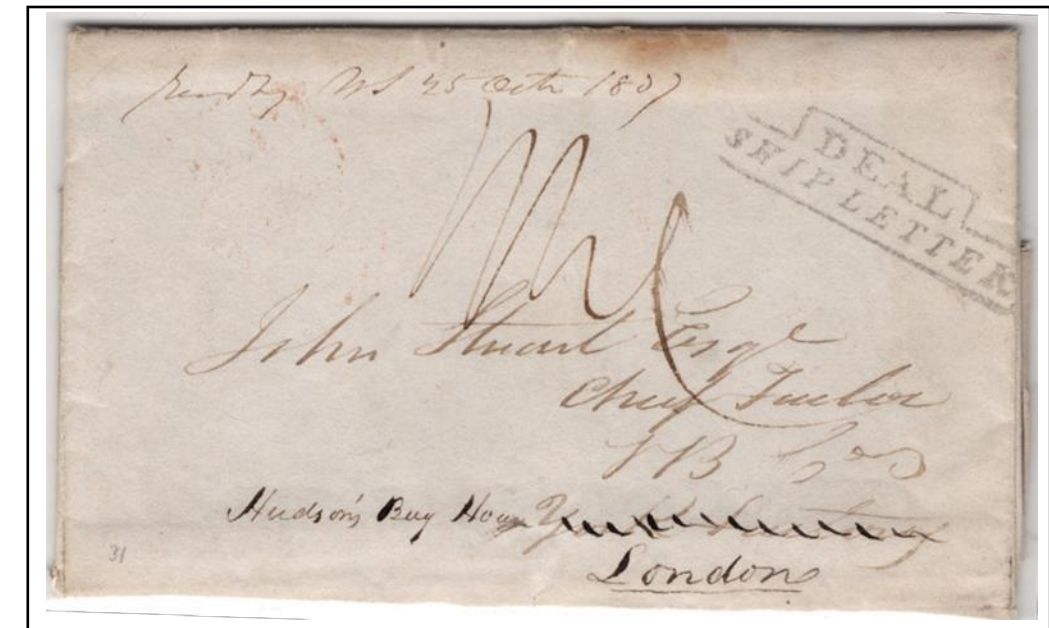 25 Octr 1837
DEAL
SHIP LETTER
John Stuart Esqr
Chief Factor
HB Co's
Hudson's Bay House
London
31